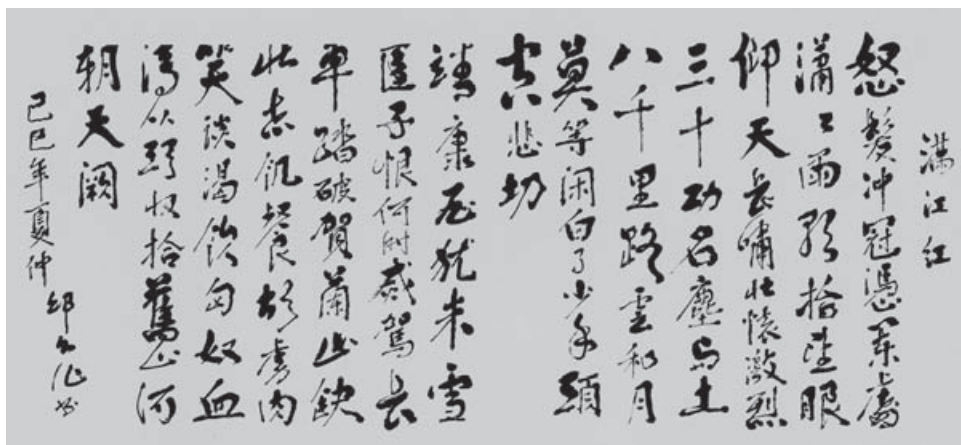 滿江红
怒髮冲冠憑闌處
瀟〻雨歇抬望眼
仰天長嘯壮懷激烈
三十功名塵与土
八千里路雲和月
莫等闲白了少年頭
空悲切
靖康耻犹未雪
臣子恨何时滅駕長
車踏破賀蘭山缺
壮志飢餐胡虜肉
笑談渴飲匈奴血
待从頭收拾舊山河
朝天闕
己巳年夏仲